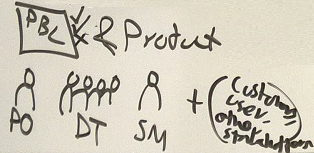 PBL & Product
PO DT SM + (Customers,
user,
other
stakeholders)